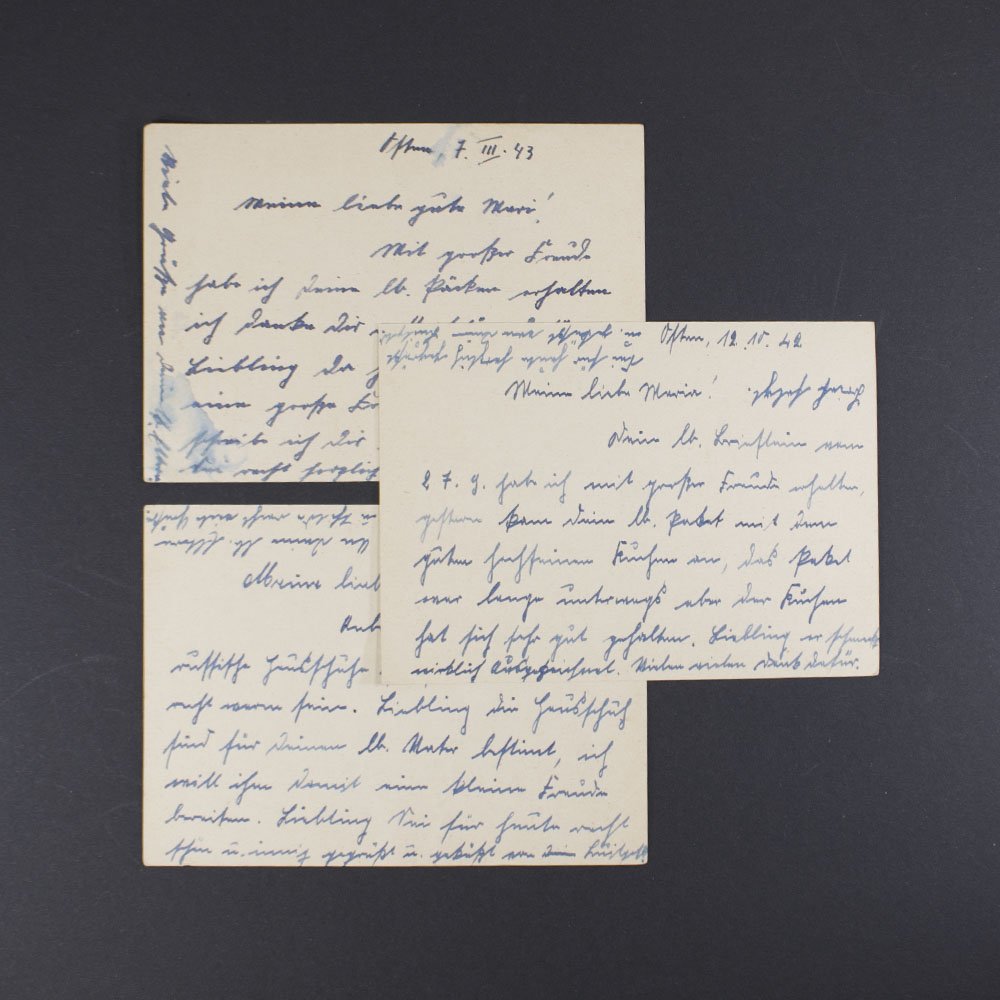 Osten, 7. III. 43
Meine liebe gute Mari!
Mit großer Freude
habe ich Deine lb. Päcken erhalten
ich danke Dir
Liebling da
eine große Fr
schreibe ich Dir
bin recht herzlich
Viele Grüße an Deine lb. Eltern
Osten, 12. 10. 42
Meine liebe Maria!
Dein lb. Brieflein vom
27. 9. habe ich mit großer Freude erhalten,
gestern kam Dein lb. Paket mit dem
guten hochfeinen Kuchen an, das Paket
war lange unterwegs aber der Kuchen
hat sich sehr gut gehalten. Liebling er schmeckt
wirklich ausgezeichnet. Vielen vielen Dank dafür.
an Deine lb. Eltern
Meine lieb
Anb
russische Hausschuhe
recht warm sein. Liebling die Hausschuh
sind für Deinen lb. Vater bestimt, ich
will ihm damit eine kleine Freude
bereiten. Liebling Sei für heute recht
schön u. innig gegrüßt u. geküßt von Dein